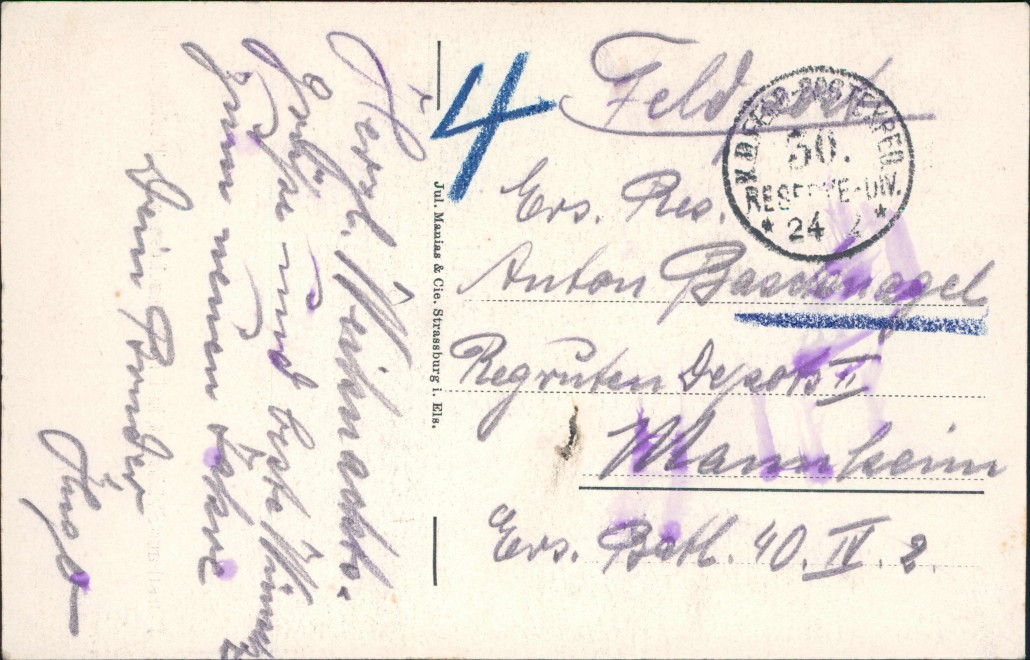 Herzl. Weihnachts-
Grüße und beste Wünsche
zum neuen Jahre
Dein Bruder
Jul. Manias & Cie. Strassburg i. Els.
4
Feldpost
K.D. FELD-POSTEXPED.
50.
RESERVE-DIV.
* 24 *
Ers. Res.
Anton Baschnagel
Regruten Depots II
Mannheim
Ers. Batl. 40. IV. 2.